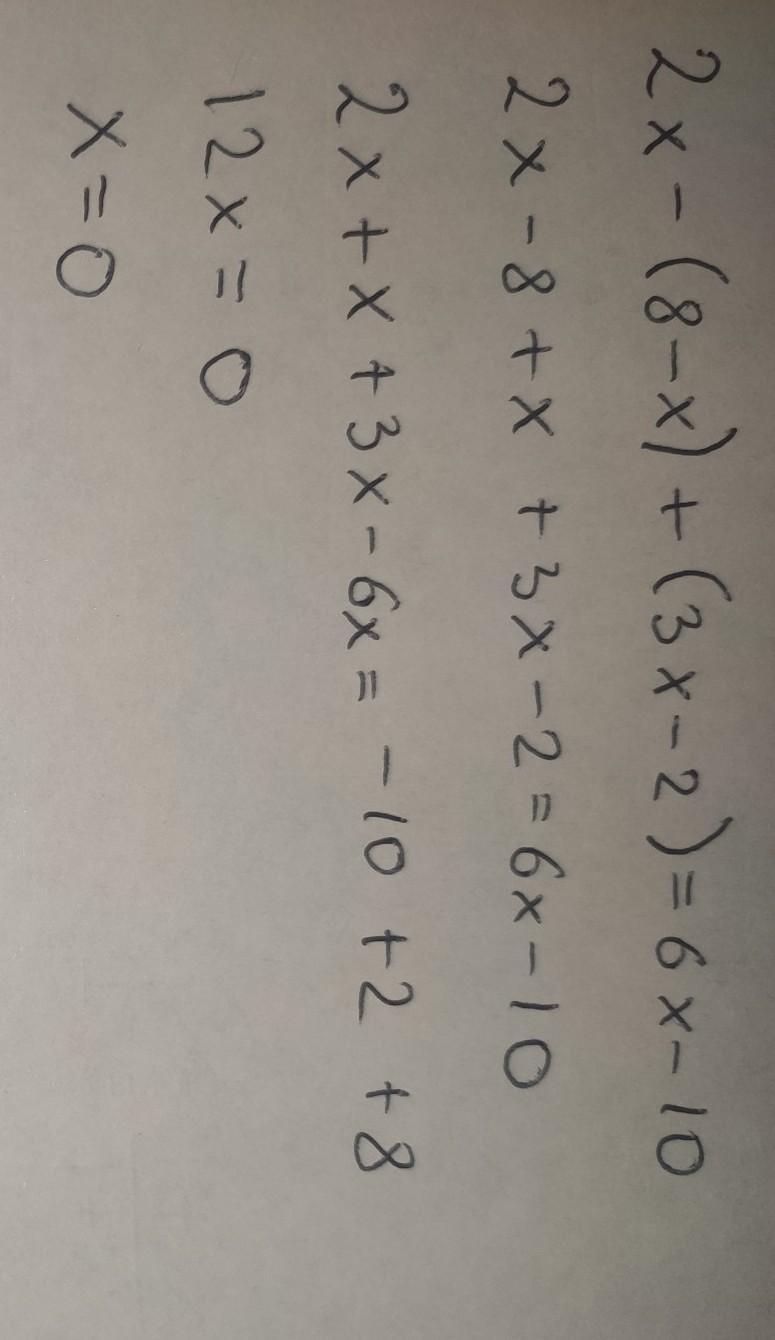 2x-(8-x)+(3x-2)=6x-10
2x-8+x+3x-2=6x-10
2x+x+3x-6x=-10+2+8
12x=0
x=0